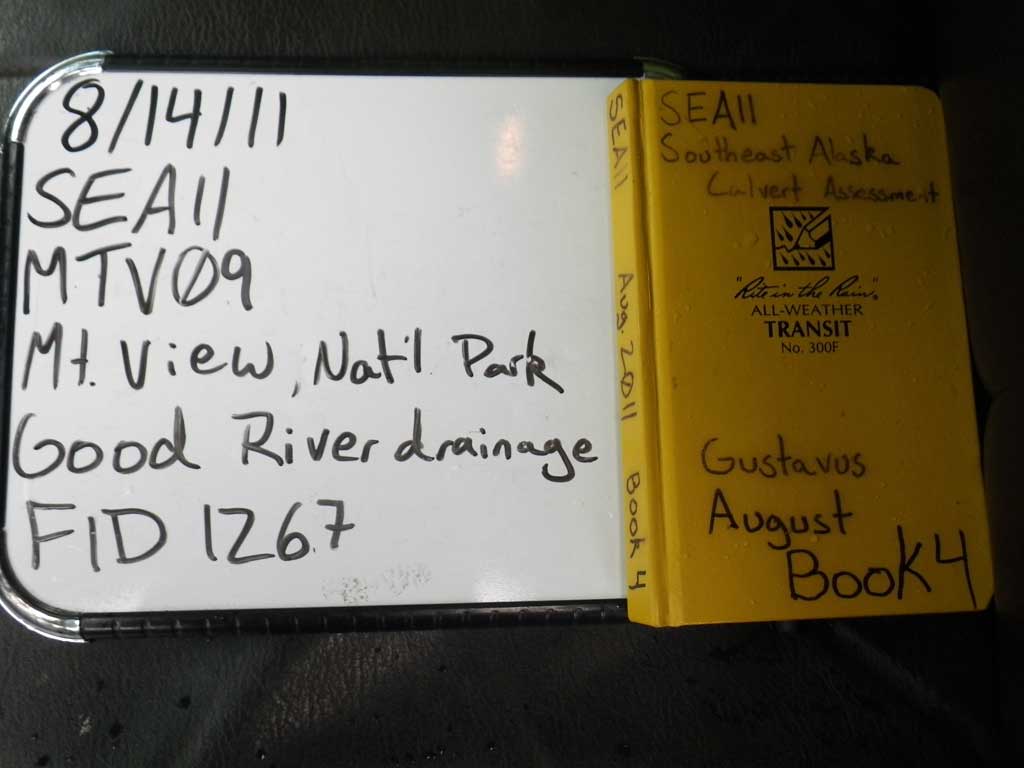 8/14/11
SEA11
MTV09
Mt. View, Nat'l Park
Good River drainage
FID 1267
SEA11 Aug. 2011 Book 4
SEA11
Southeast Alaska
Culvert Assessment
"Rite in the Rain"®
ALL-WEATHER
TRANSIT
No. 300F
Gustavus
August
Book 4